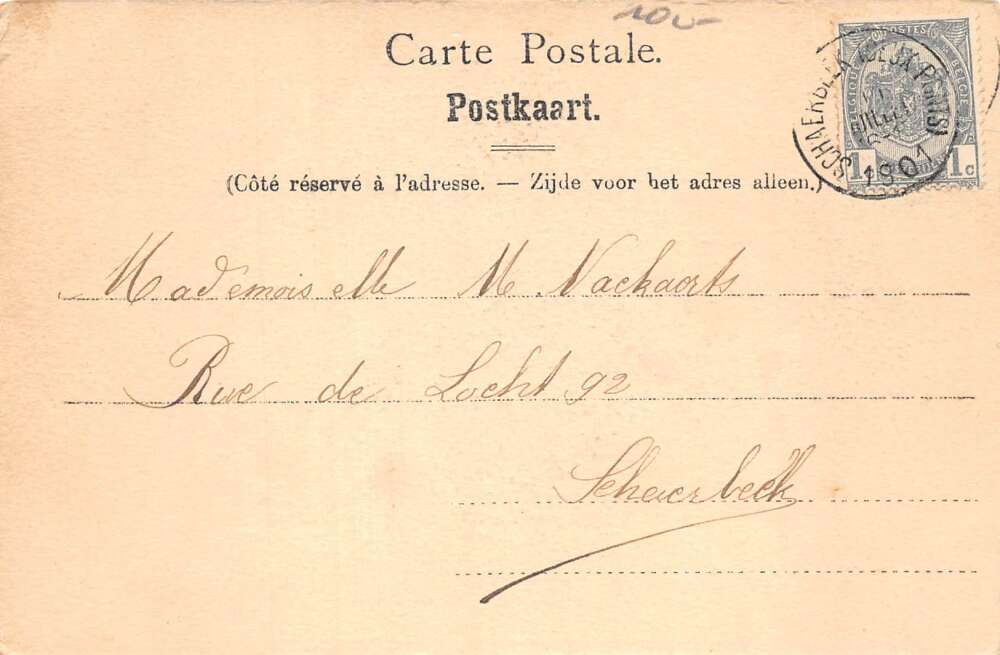 100-
Carte Postale.
Postkaart.
(Côté réservé à l'adresse. — Zijde voor het adres alleen.)
POSTES
BELGIQUE BELGIË
1c 1c
SCHAERBEEK (DEUX PONTS)
JUILLET
1901
Mademoiselle M. Vackaerts
Rue de Locht 92
Schaerbeek